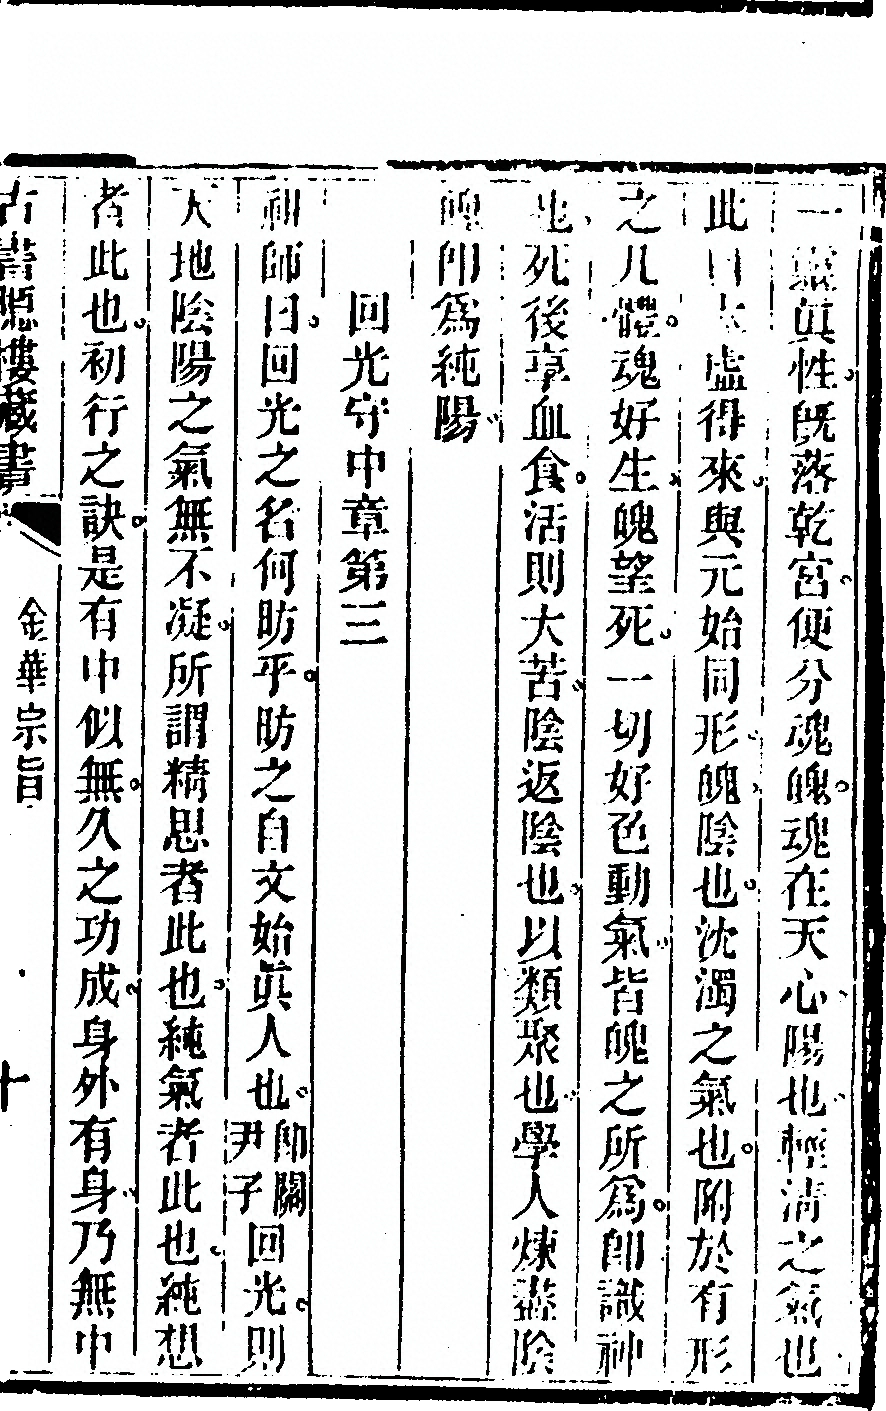 一靈眞性既落乾宮便分魂魄魂在天心陽也輕清之氣也
此自太虛得來與元始同形魄陰也沈濁之氣也附於有形
之凡體魂好生魄望死一切好色動氣皆魄之所爲卽識神
也死後享血食活則大苦陰返陰也以類聚也學人煉盡陰
魄卽爲純陽
回光守中章第三
祖師曰回光之名何昉乎昉之自文始眞人也卽關尹子回光則
天地陰陽之氣無不凝所謂精思者此也純氣者此也純想
者此也初行之訣是有中似無久之功成身外有身乃無中
古書隱樓藏書
金華宗旨
十